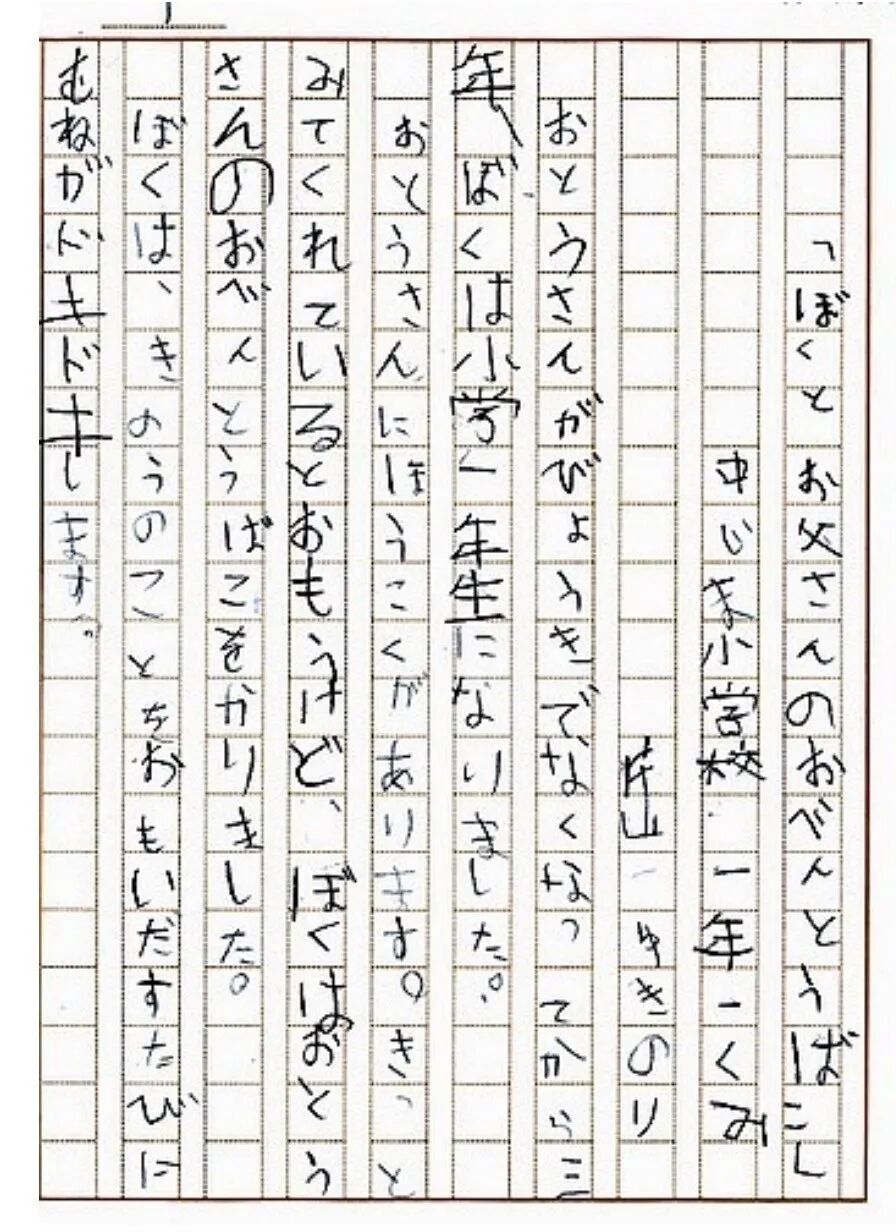 「ぼくとお父さんのおべんとうばこ」
中しま小学校 一年一くみ
片山 ゆきのり
おとうさんがびょうきでなくなってから三
年、ぼくは小学一年生になりました。
おとうさんにほうこくがあります。きっと
みてくれているとおもうけど、ぼくはおとう
さんのおべんとうばこをかりました。
ぼくは、きのうのことをおもいだすたびに
むねがドキドキします。